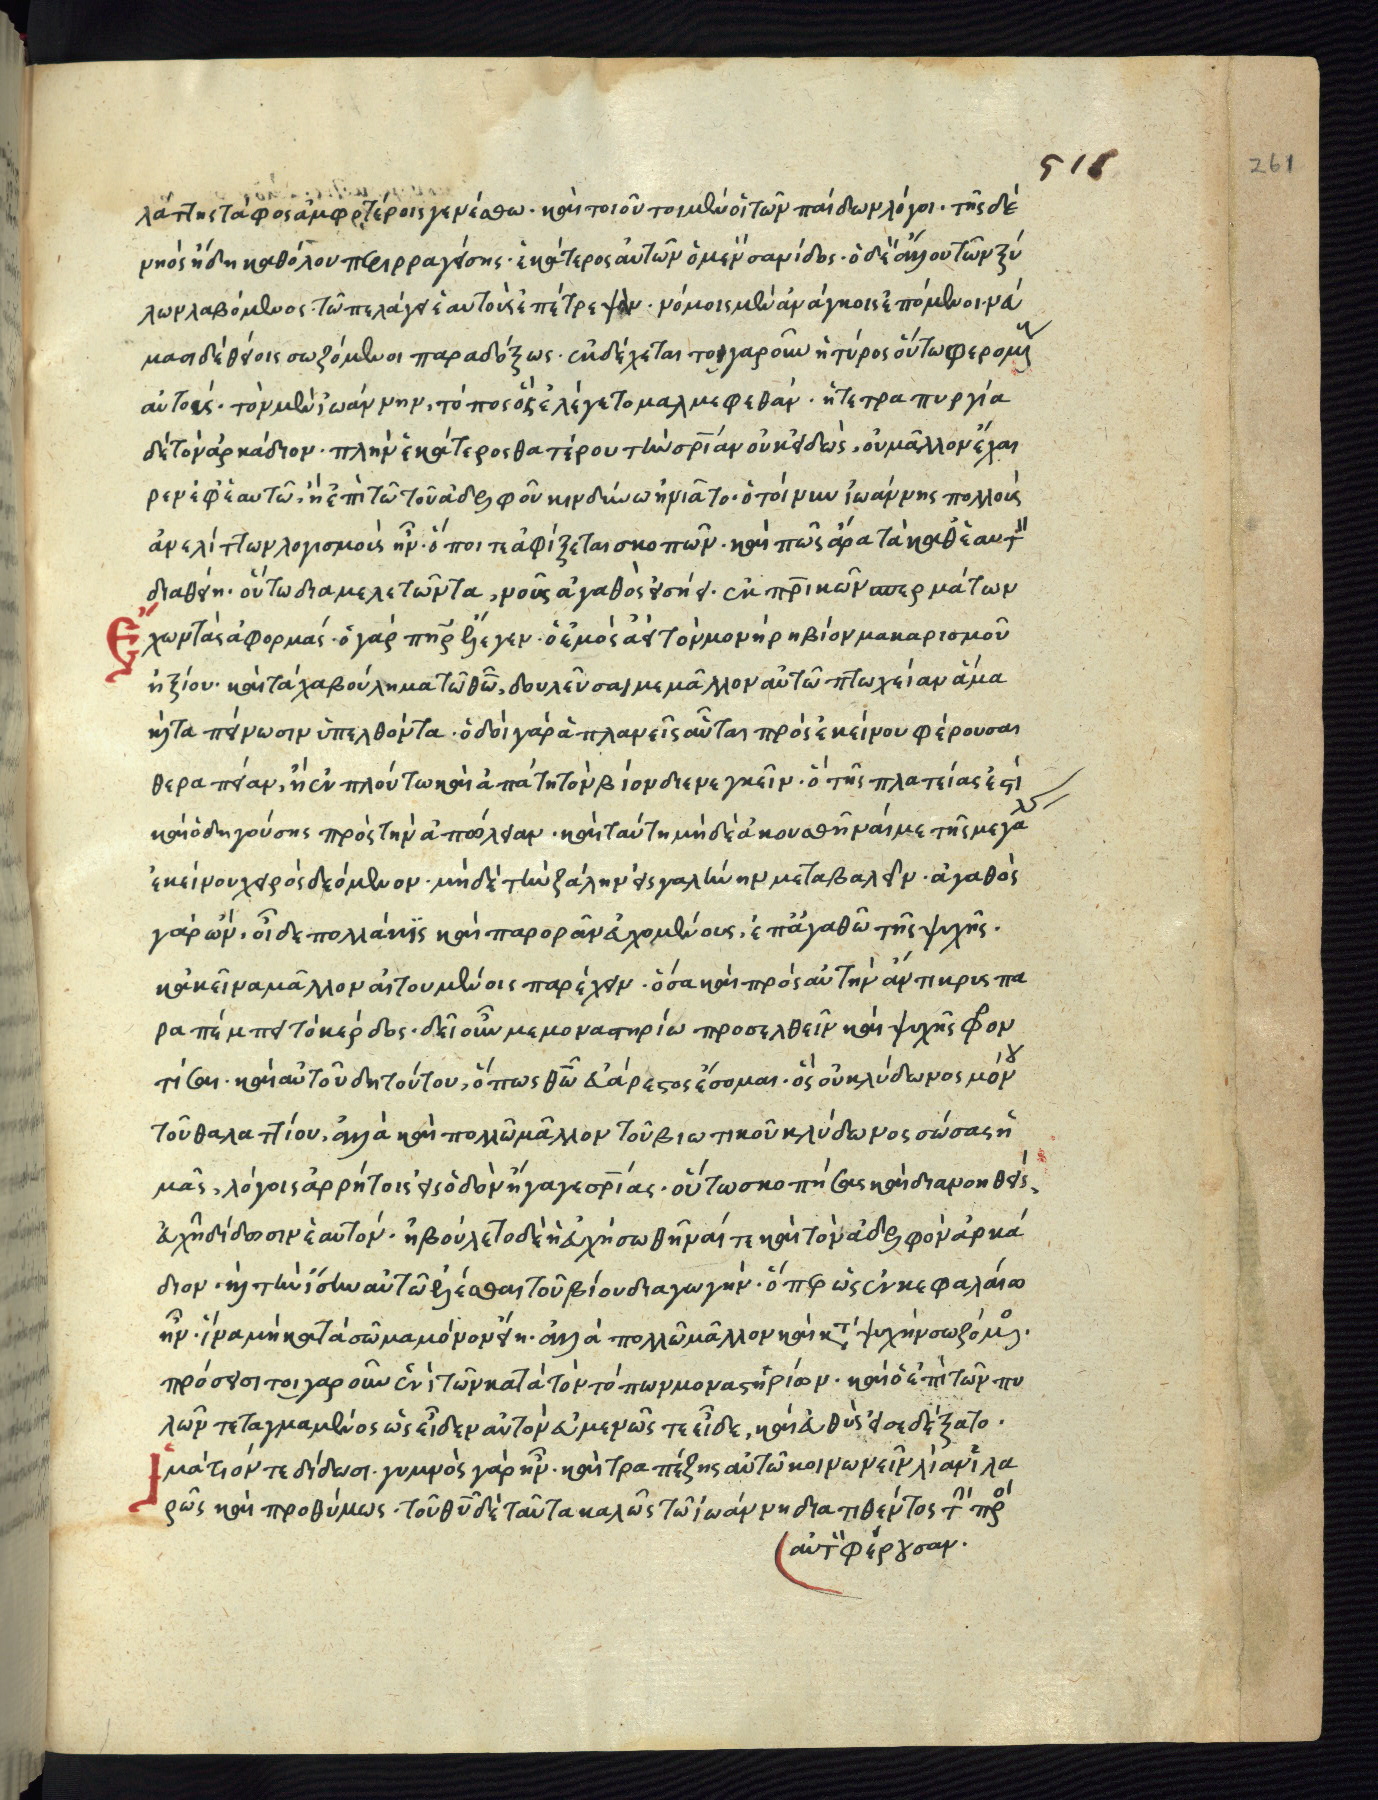 511
261
λάττης τάφος ἀμφοτέροις γενέσθω. καὶ τοιοῦτοι μὲν οἱ τῶν παίδων λόγοι. τῆς δὲ
νηὸς ἤδη καθόλου περιρραγείσης. ἑκάτερος αὐτῶν ὁ μὲν σανίδος. ὁ δὲ ἄλλου τῶν ξύ
λων λαβόμενος τῶ πελάγει ἑαυτοὺς ἐπέτρεψαν. νόμοις μὲν ἀνάγκοις ἑπόμενοι. νεύ
μασι δὲ θείοις σωζόμενοι παραδόξως. ἐκδέχεται τοιγαροῦν ἡ τύρος οὕτω φερομένους
αὐτούς. τὸν μὲν ἰωάννην, τόπος ὃς ἐλέγετο μαλμεφεθάν. ἡ τετραπυργία
δὲ τὸν ἀρκάδιον. πλὴν ἑκάτερος θατέρου τὴν σρίαν οὐκ εἰδώς, οὐ μᾶλλον ἔχαι
ρεν ἐφ ἑαυτῶ, ἢ ἐπὶ τῶ τοῦ ἀδελφοῦ κινδύνω ἠνιᾶτο. ὁ τοίνυν ἰωάννης πολλοὺς
ἀνελίττων λογισμοὺς ἦν. ὅποι τε ἀφίξεται σκοπῶν. καὶ πῶς ἄρα τὰ καθ ἑαυτὸν
διαθείη. οὕτω διαμελετῶντα, νοῦς ἀγαθὸς εἰσήει. ἐκ πρικῶν σπερμάτων
Ἔχων τὰς ἀφορμάς. ὁ γὰρ πηρ ἔλεγεν. ὁ ἐμὸς ἀεὶ τὸν μονήρη βίον μακαρισμοῦ
ἠξίου. καὶ τάχα βούλημα τῶ θῶ, δουλεῦσαί με μᾶλλον αὐτῶ πτωχείαν ἅμα
καὶ ταπείνωσιν ὑπελθόντα. ὁδοὶ γὰρ ἀπλανεῖς αὗται πρὸς ἐκείνου φέρουσαι
θεραπείαν, ἢ ἐν πλούτω καὶ ἀπάτη τὸν βίον διενεγκεῖν. ὃ τῆς πλατείας ἐστὶ
καὶ ὁδηγούσης πρὸς τὴν ἀπώλειαν. καὶ ταύτη μηδὲ ἀκουσθῆναί με τῆς μεγάλης
ἐκείνου χειρὸς δεόμενον. μηδὲ τὴν ζάλην εἰς γαλήνην μεταβαλεῖν. ἀγαθὸς
γὰρ ὤν, οἶδε πολλάκις καὶ παρορᾶν εὐχομένους, ἐπ ἀγαθῶ τῆς ψυχῆς.
κἀκεῖνα μᾶλλον αἰτουμένοις παρέχειν. ὅσα καὶ πρὸς αὐτὴν ἄντικρυς πα
ραπέμπει τὸ κέρδος. δεῖ οὖν με μοναστηρίω προσελθεῖν καὶ ψυχῆς φρον
τίσαι. καὶ αὐτοῦ δὴ τούτου, ὅπως θῶ εὐάρεστος ἔσομαι. ὃς οὐ κλύδωνος μόνου
τοῦ θαλαττίου, ἀλλὰ καὶ πολλῶ μᾶλλον τοῦ βιωτικοῦ κλύδωνος σώσας ἡ
μᾶς, λόγοις ἀρρήτοις εἰς ὁδὸν ἤγαγε σρίας. οὕτω σκοπήσας καὶ διανοηθείς,
εὐχῆ δίδωσιν ἑαυτόν. ἠβούλετο δὲ ἡ εὐχὴ σωθῆναί τε καὶ τὸν ἀδελφὸν ἀρκά
διον. καὶ τὴν ἴσην αὐτῶ ἑλέσθαι τοῦ βίου διαγωγήν. ὅπερ ὡς ἐν κεφαλαίω
ἦν. ἵνα μὴ κατὰ σῶμα μόνον εἴη. ἀλλὰ πολλῶ μᾶλλον καὶ κτ ψυχὴν σωζόμενος.
πρόσεισι τοιγαροῦν ἑνὶ τῶν κατὰ τὸν τόπων μοναστηρίων. καὶ ὁ ἐπὶ τῶν πυ
λῶν τεταγμαμένος ὡς εἶδεν αὐτὸν εὐμενῶς τε εἶδε, καὶ εὐθὺς εἰσεδέξατο.
Ἱμάτιόν τε δίδωσι. γυμνὸς γὰρ ἦν. καὶ τραπέζης αὐτῶ κοινωνεῖν λίαν ἱλα
ρῶς καὶ προθύμως. τοῦ θυ δὲ ταῦτα καλῶς τῶ ἰωάννη διατιθέντος τὴν πρὸς
αὐτὸν φέρουσαν.